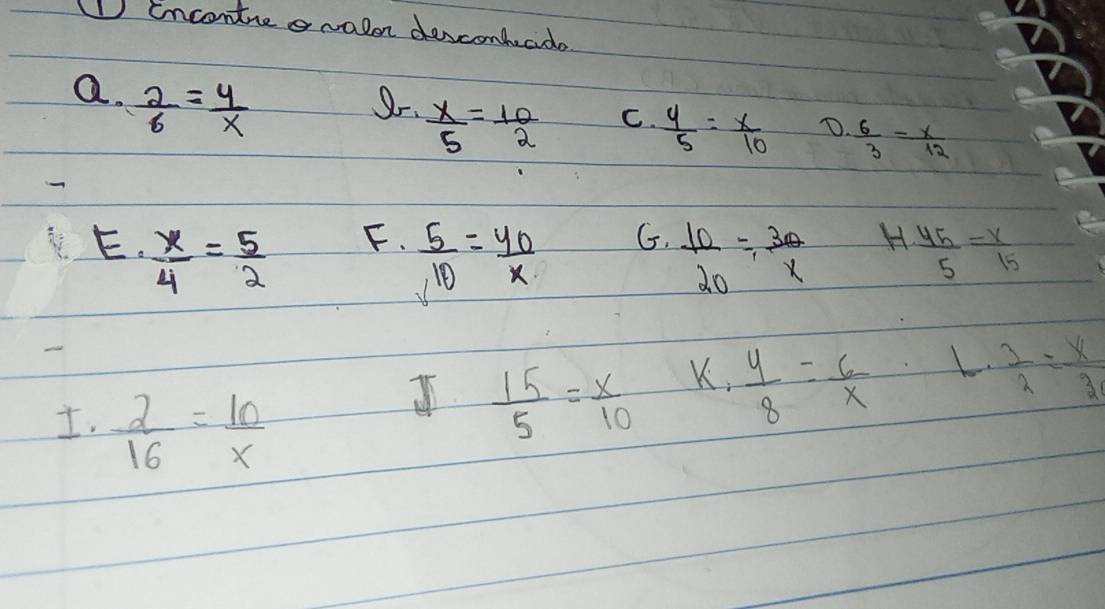 ① Encontre o valor desconhecido.
a. 2/6 = 4/x b. x/5 = 10/2 C. 4/5 = x/10 D. 6/3 = x/12
E. x/4 = 5/2 F. 5/10 = 40/x G. 10/20 = 30/x H. 45/5 = x/15
I. 2/16 = 10/x J 15/5 = x/10 K. 4/8 = 6/x L.